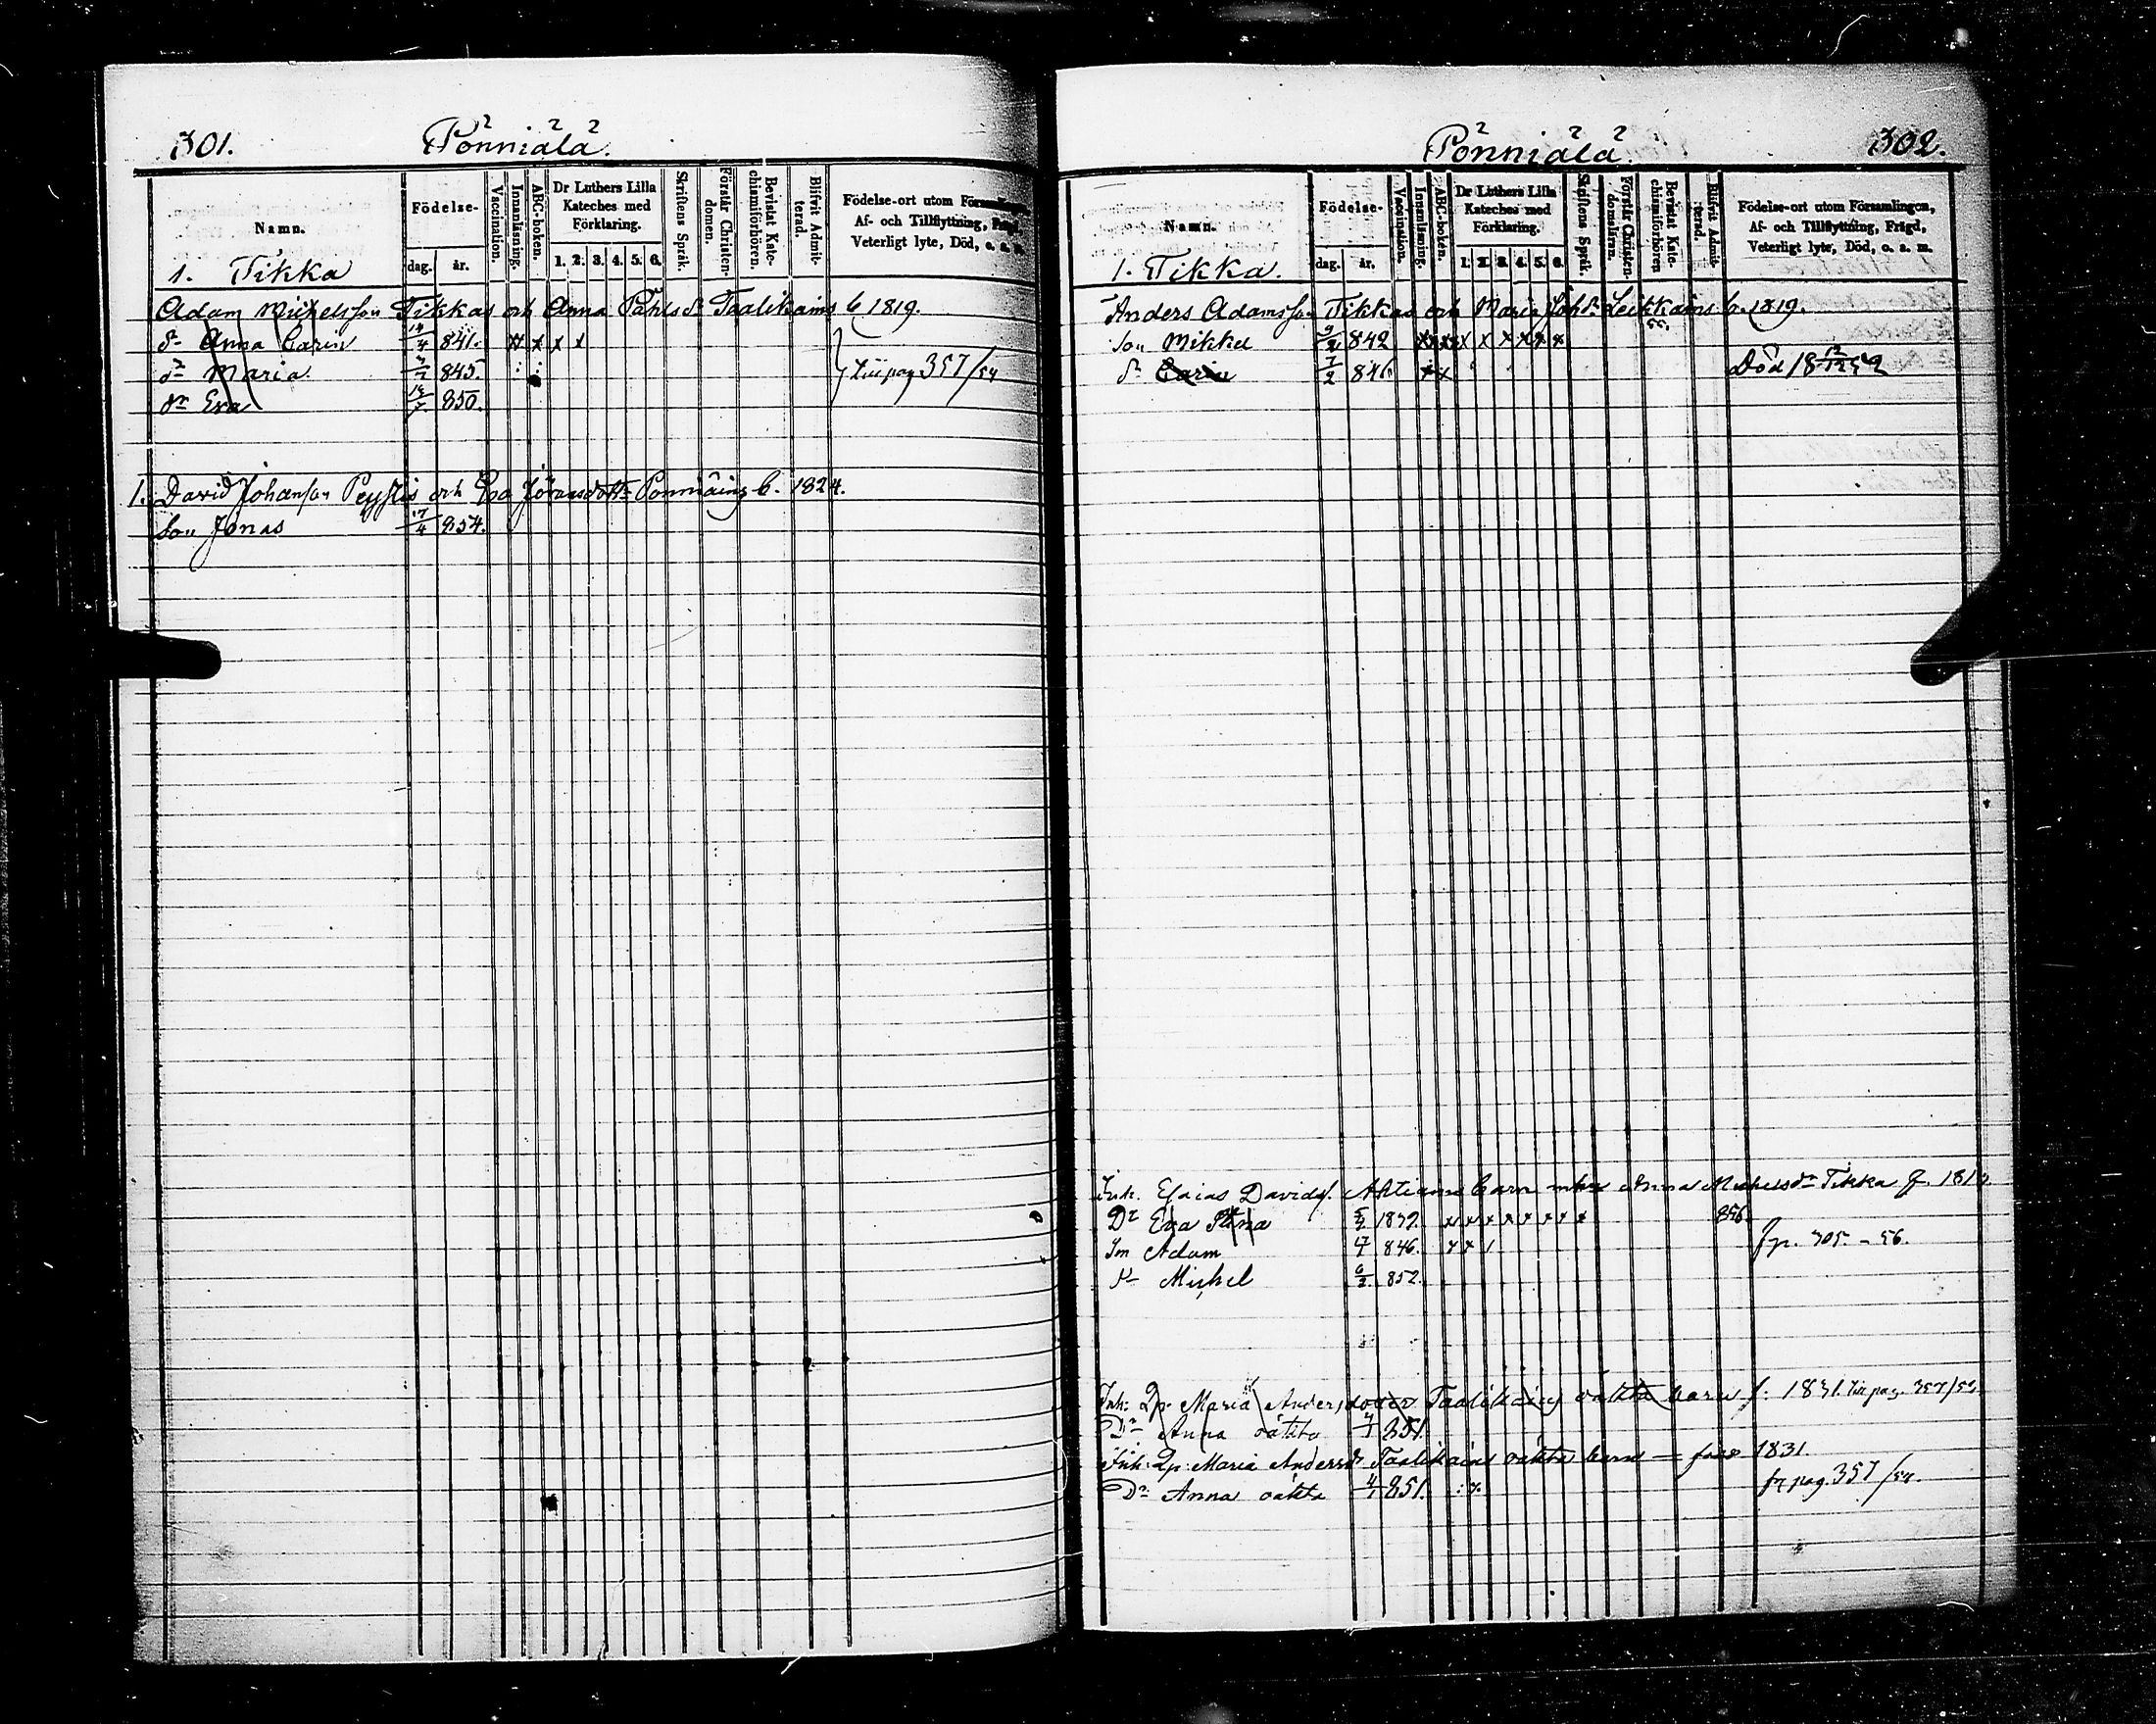 301.
Pönniälä.
Namn.
Födelse-
dag. år.
Vaccination.
Innanläsning.
ABC-boken.
Dr Luthers Lilla Kateches med Förklaring.
1. 2. 3. 4. 5. 6.
Skriftens Språk.
Förstår Christen-domen.
Bevistat Kate-chismiförhören.
Blifvit Admit-terad.
Födelse-ort utom Församlingen,
Af- och Tillflyttning, Frägd,
Veterligt lyte, Död, o. s. m.
1. Tikka
Adam Michelsson Tikkas och Anna Påhlsdr Taalikains b 1819.
dr Anna Carin 14/4 841. x x x x
dr Maria 845.
Till pag 357/54
dr Eva 850.
1. David Johansson Peystis och Eva Göransdottr Pönniäins b. 1824.
Son Jonas 17/4 854.
Pönniälä.
302.
Namn.
Födelse-
dag. år.
Vaccination.
Innanläsning.
ABC-boken.
Dr Luthers Lilla Kateches med Förklaring.
1. 2. 3. 4. 5. 6.
Skriftens Språk.
Förstår Christen-domsläran.
Bevistat Kate-chismiförhören
Blifvit Admit-terad.
Födelse-ort utom Församlingen,
Af- och Tillflyttning, Frägd,
Veterligt lyte, Död, o. s. m.
1. Tikka.
Anders Adamsson Tikkas och Maria Johdr Leikkains b. 1819.
Son Mikkel 842 x x x x x x x x x
dr Carin 7/2 846. x x Död 18
Inh. Esaias Davids. Ahtiains barn Anna Michelsdr Tikka
Dr Eva Stina x x x x x x x x 856.
Son Adam 17/7 846. x x / fr p. 305 - 56.
dr Michel 6/2 852.
Inh: Qp. Maria Andersdotter Taalikains oäkta barn f. 1831. Till pag. 357/54
Dr Anna oäkta 4/1 851.
Inh: Qp: Maria Andersdr Taalikains oäkta barn — född 1831.
Dr Anna oäkta 4/1 851. fr pag. 357/54.